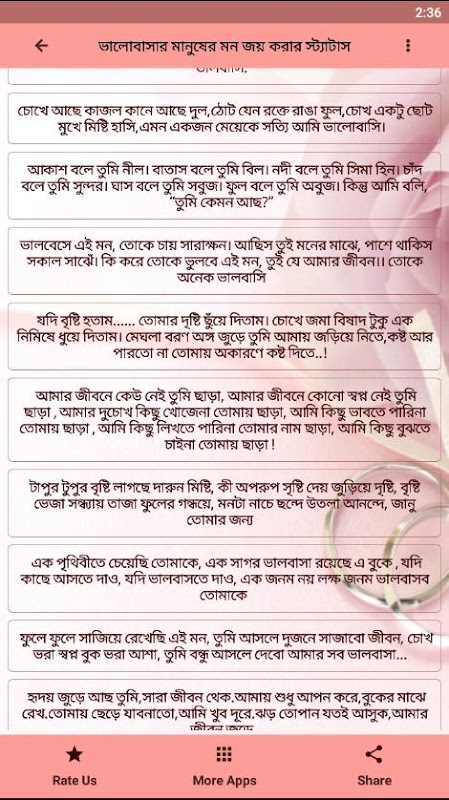 2:36
ভালোবাসার মানুষের মন জয় করার স্ট্যাটাস
চোখে আছে কাজল কানে আছে দুল,ঠোট যেন রক্তে রাঙা ফুল,চোখ একটু ছোট
মুখে মিষ্টি হাসি,এমন একজন মেয়েকে সত্যি আমি ভালোবাসি।
আকাশ বলে তুমি নীল। বাতাস বলে তুমি বিল। নদী বলে তুমি সিমা হিন। চাঁদ
বলে তুমি সুন্দর। ঘাস বলে তুমি সবুজ। ফুল বলে তুমি অবুজ। কিন্তু আমি বলি,
"তুমি কেমন আছ?"
ভালবেসে এই মন, তোকে চায় সারাক্ষন। আছিস তুই মনের মাঝে, পাশে থাকিস
সকাল সাঝেঁ। কি করে তোকে ভুলবে এই মন, তুই যে আমার জীবন।। তোকে
অনেক ভালবাসি
যদি বৃষ্টি হতাম...... তোমার দৃষ্টি ছুঁয়ে দিতাম। চোখে জমা বিষাদ টুকু এক
নিমিষে ধুয়ে দিতাম। মেঘলা বরণ অঙ্গ জুড়ে তুমি আমায় জড়িয়ে নিতে,কষ্ট আর
পারতো না তোমায় অকারণে কষ্ট দিতে..!
আমার জীবনে কেউ নেই তুমি ছাড়া, আমার জীবনে কোনো স্বপ্ন নেই তুমি
ছাড়া , আমার দুচোখ কিছু খোজেনা তোমায় ছাড়া, আমি কিছু ভাবতে পারিনা
তোমায় ছাড়া , আমি কিছু লিখতে পারিনা তোমার নাম ছাড়া, আমি কিছু বুঝতে
চাইনা তোমায় ছাড়া !
টাপুর টুপুর বৃষ্টি লাগছে দারুন মিষ্টি, কী অপরুপ সৃষ্টি দেয় জুড়িয়ে দৃষ্টি, বৃষ্টি
ভেজা সন্ধ্যায় তাজা ফুলের গন্ধয়ে, মনটা নাচে ছন্দে উতলা আনন্দে, জানু
তোমার জন্য
এক পৃথিবীতে চেয়েছি তোমাকে, এক সাগর ভালবাসা রয়েছে এ বুকে , যদি
কাছে আসতে দাও, যদি ভালবাসতে দাও, এক জনম নয় লক্ষ জনম ভালবাসব
তোমাকে
ফুলে ফুলে সাজিয়ে রেখেছি এই মন, তুমি আসলে দুজনে সাজাবো জীবন, চোখ
ভরা স্বপ্ন বুক ভরা আশা, তুমি বন্ধু আসলে দেবো আমার সব ভালবাসা...
হৃদয় জুড়ে আছ তুমি,সারা জীবন থেক.আমায় শুধু আপন করে,বুকের মাঝে
রেখ.তোমায় ছেড়ে যাবনাতো,আমি খুব দূরে.ঝড় তোপান যতই আসুক,আমার
Rate Us
More Apps
Share